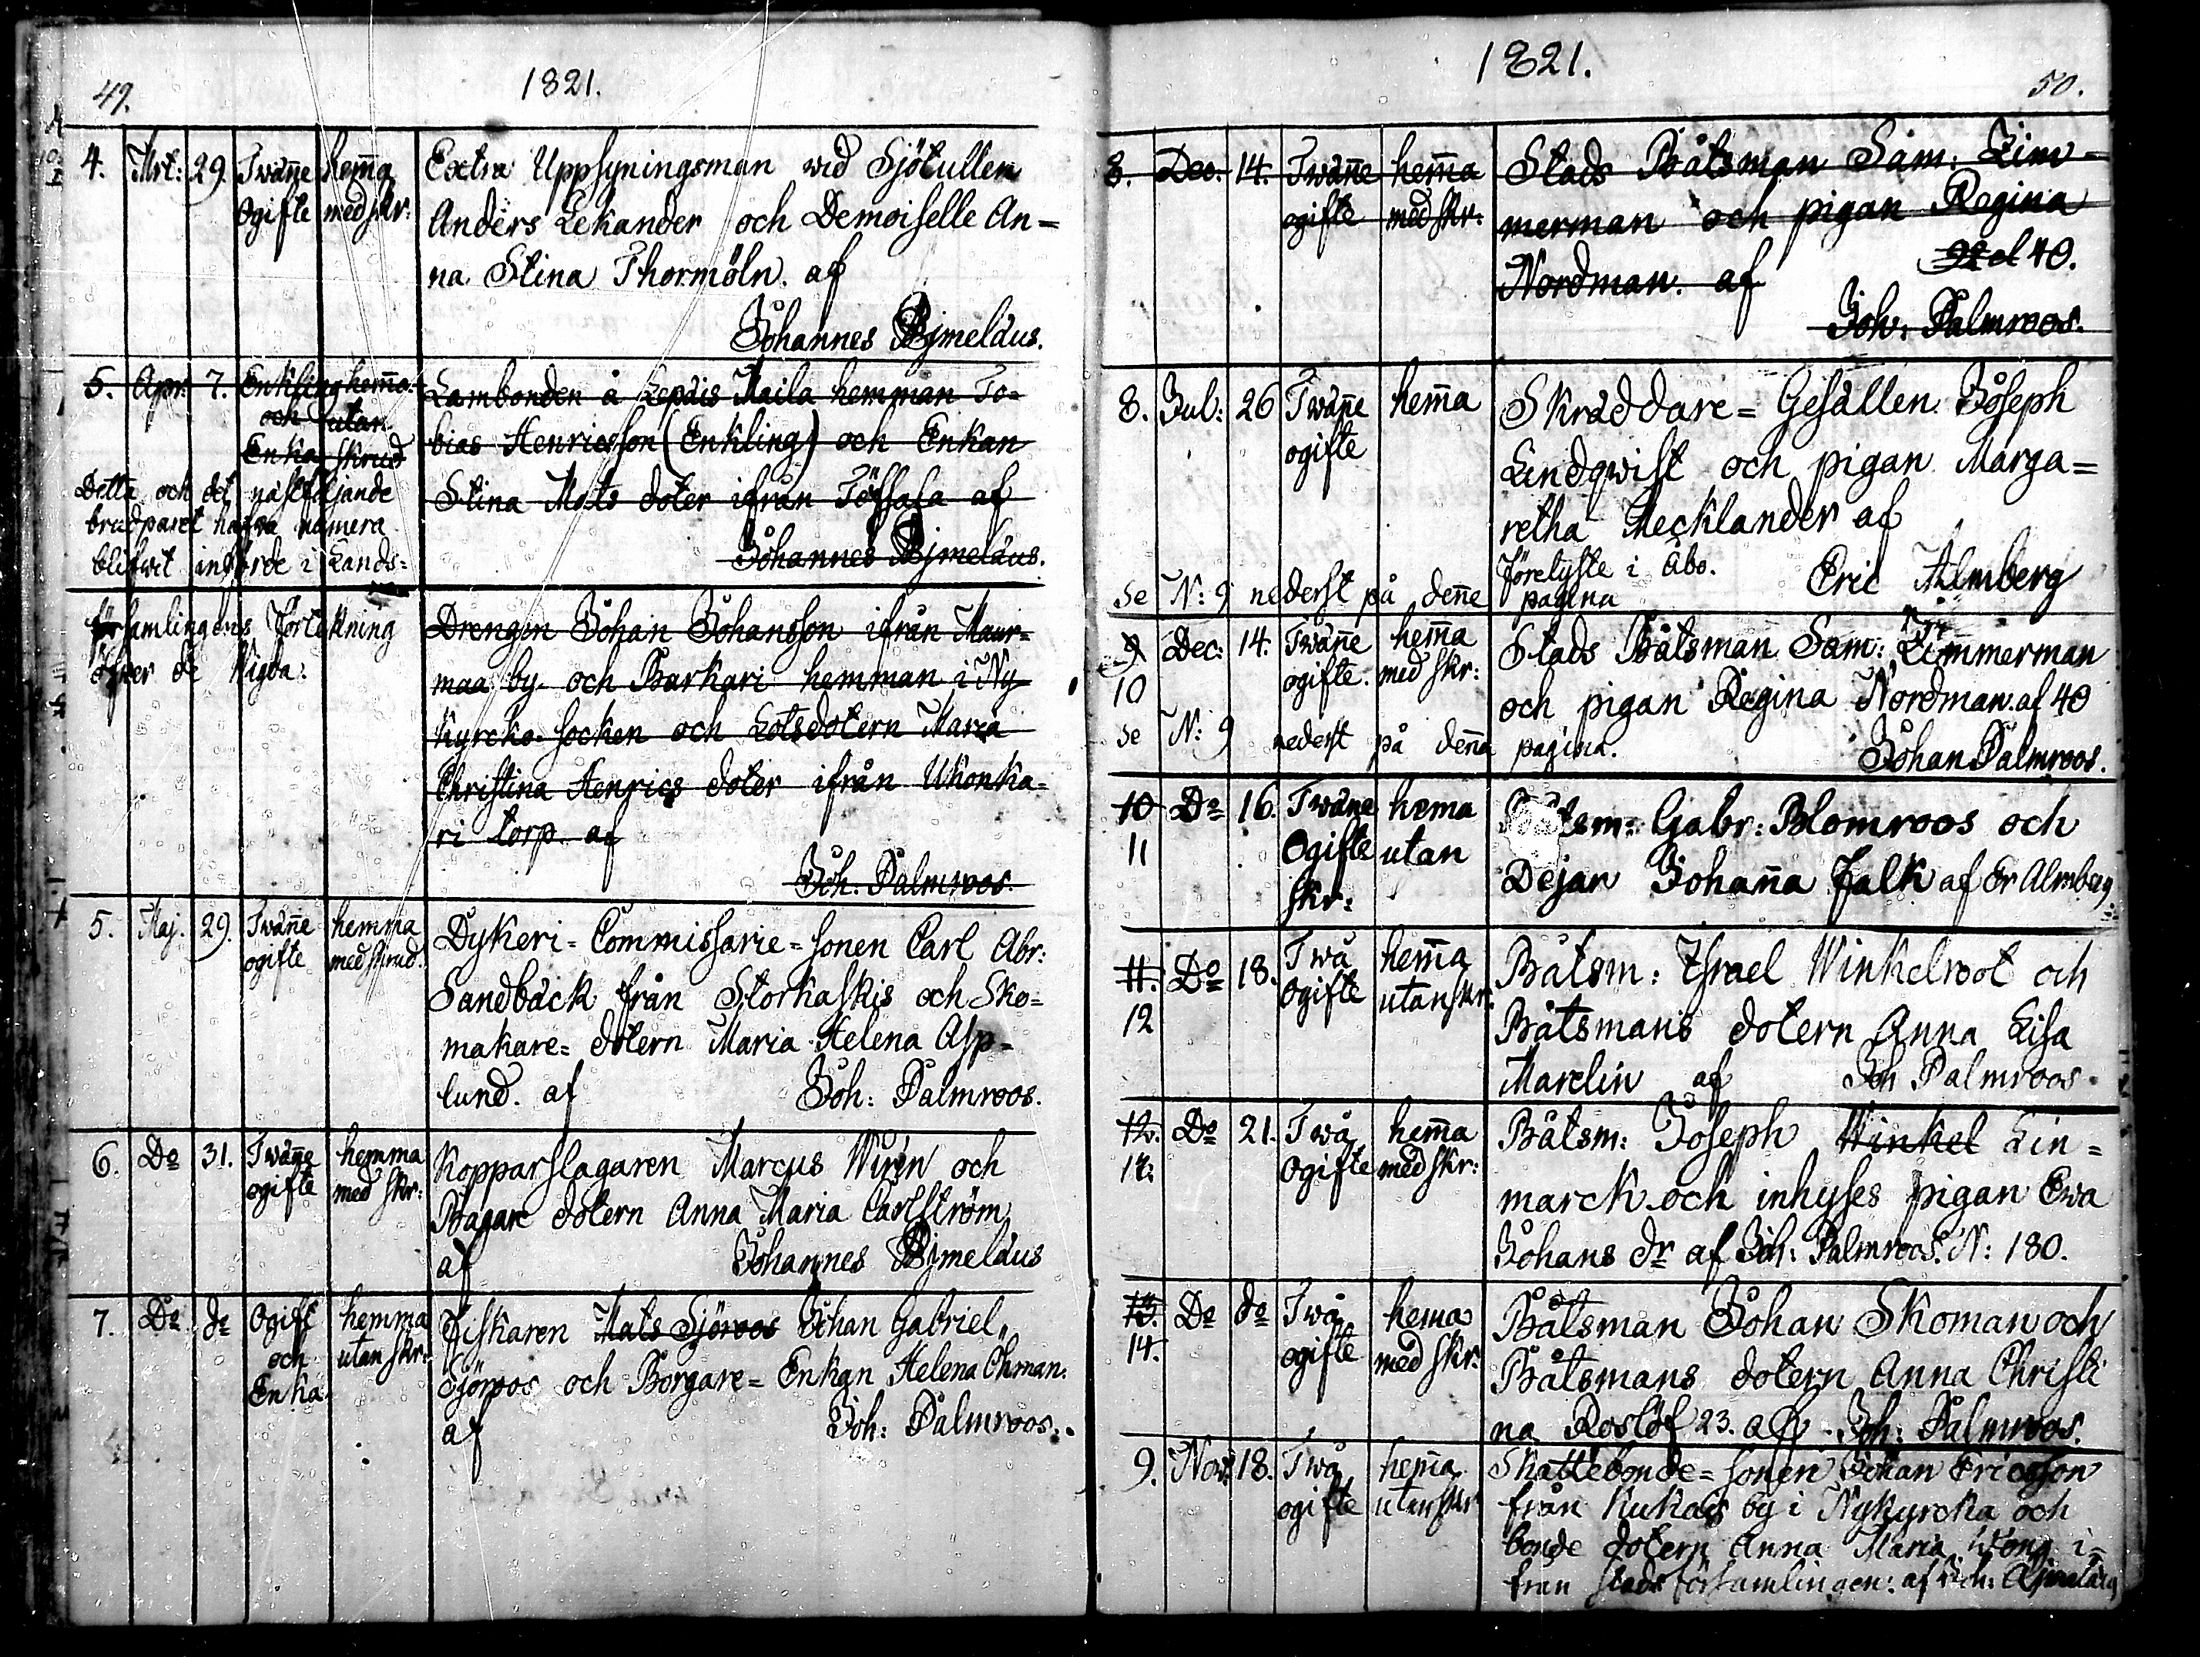 49.
1821.
4. Mrt: 29. Twäñe hem̄a Extra Uppsyningsman wid Sjötullen
Ogifte med skr: Anders Lekander och Demoiselle An=
na Stina Thormöln. af
Johannes Bjmeläus.
5. Apr: 7. Enkling hem̄a. Lambonden å Lepäis Maila hemman To=
och utan bias Henricsson (Enkling) och Enkan
Enka skrud
Stina Mats doter ifrån Töfsala af
Johannes Bjmeläus.
Detta och det nästföljande
brudparet hafva numera
blifwit införde i Lands=
församlingens förtekning
öfver de Vigda:
Drengen Johan Johansson ifrån Maur=
maa by och Barkari hemman i Ny
kyrcko socken och Lotsdotern Maria
Christina Henrics doter ifrån Ukonka=
ri torp. af
Joh: Palmroos.
5. Maj. 29. Twäñe hemma Dykeri=Commissarie=sonen Carl Abr:
ogifte med skrud. Sandbäck från Storkaskis och Sko=
makare=dotern Maria Helena Asp=
lund. af Joh: Palmroos.
6. Do 31. Twäñe hemma Kopparslagaren Marcus Wirén och
ogifte med skr: Bagare dotern Anna Maria Carlström
af Johannes Bjmeläus
7. Do do Ogift hemma Fiskaren Mats Sjöroos Johan Gabriel
och utan skr: Sjöroos och Borgare=Enkan Helena Öhman.
Enka af Joh: Palmroos.
1821.
50.
8. Dec. 14. Twäñe hem̄a Stads Båtsman Sam: Zim=
ogifte med skr: merman och pigan Regina
Nordman. af 40.
Joh: Palmroos.
8. Jul: 26 Twäñe hem̄a Skräddare=Gesällen Joseph
ogifte Lindqwist och pigan Marga=
retha Mecklander af
förelyste i Åbo. Eric Almberg
se N: 9 nederst på deñe pagina
9 Dec: 14. Twäñe hem̄a Stads Båtsman Sam: Zimmerman
10 ogifte. med skr: och pigan Regina Nordman. af 40
se N: 9 nederst på denna pagina. Johan Palmroos.
10 Do 16. Twäne hema Båtsm: Gabr: Blomroos och
11 Ogifte utan Dejan Johaña Falk af Er Almberg
skr:
11. Do 18. Twå hem̄a Båtsm: Israel Winkelroot och
12 Ogifte utan skr: Båtsmans dotern Anna Lisa
Marelin af Joh Palmroos.
12. Do 21. Twå hem̄a Båtsm: Joseph Winkel Lin=
Ogifte med skr: marck och inhyses pigan Ewa
Johans dr af Joh: Palmroos. N: 180.
13. Do do Twå hema Båtsman Johan Skoman och
14. ogifte med skr: Båtsmans dotern Anna Christi
na Roslöf 23. af Joh: Palmroos.
9. Nov: 18. Twå hem̄a Skattebonde=sonen Johan Ericsson
ogifte utan skr från Kukais by i Nykyrcka och
bonde dotern Anna Maria i=
från stads församlingen: af Joh: